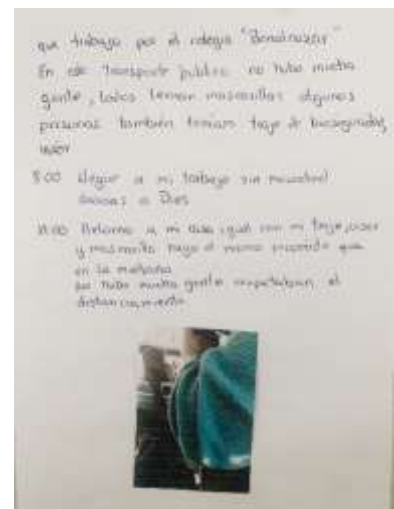 que trabaja por el colegio "Benalcazar"
En este transporte publico no tubo mucha
gente, todos tenian mascarillas algunas
personas tambien tenian traje de bioseguridad,
visor
8:00 llegar a mi trabajo sin novedad
Gracias a Dios
Retorno a mi casa igual con mi traje, visor
y mascarilla hago el mismo recorrido que
en la mañana
no tubo mucha gente respetaban el
distanciamiento